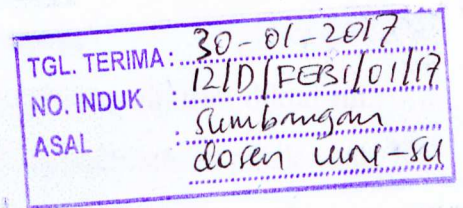 TGL. TERIMA : 30-01-2017
NO. INDUK : 12/D/FEBI/01/17
ASAL : Sumbangan
dosen UIN-SU